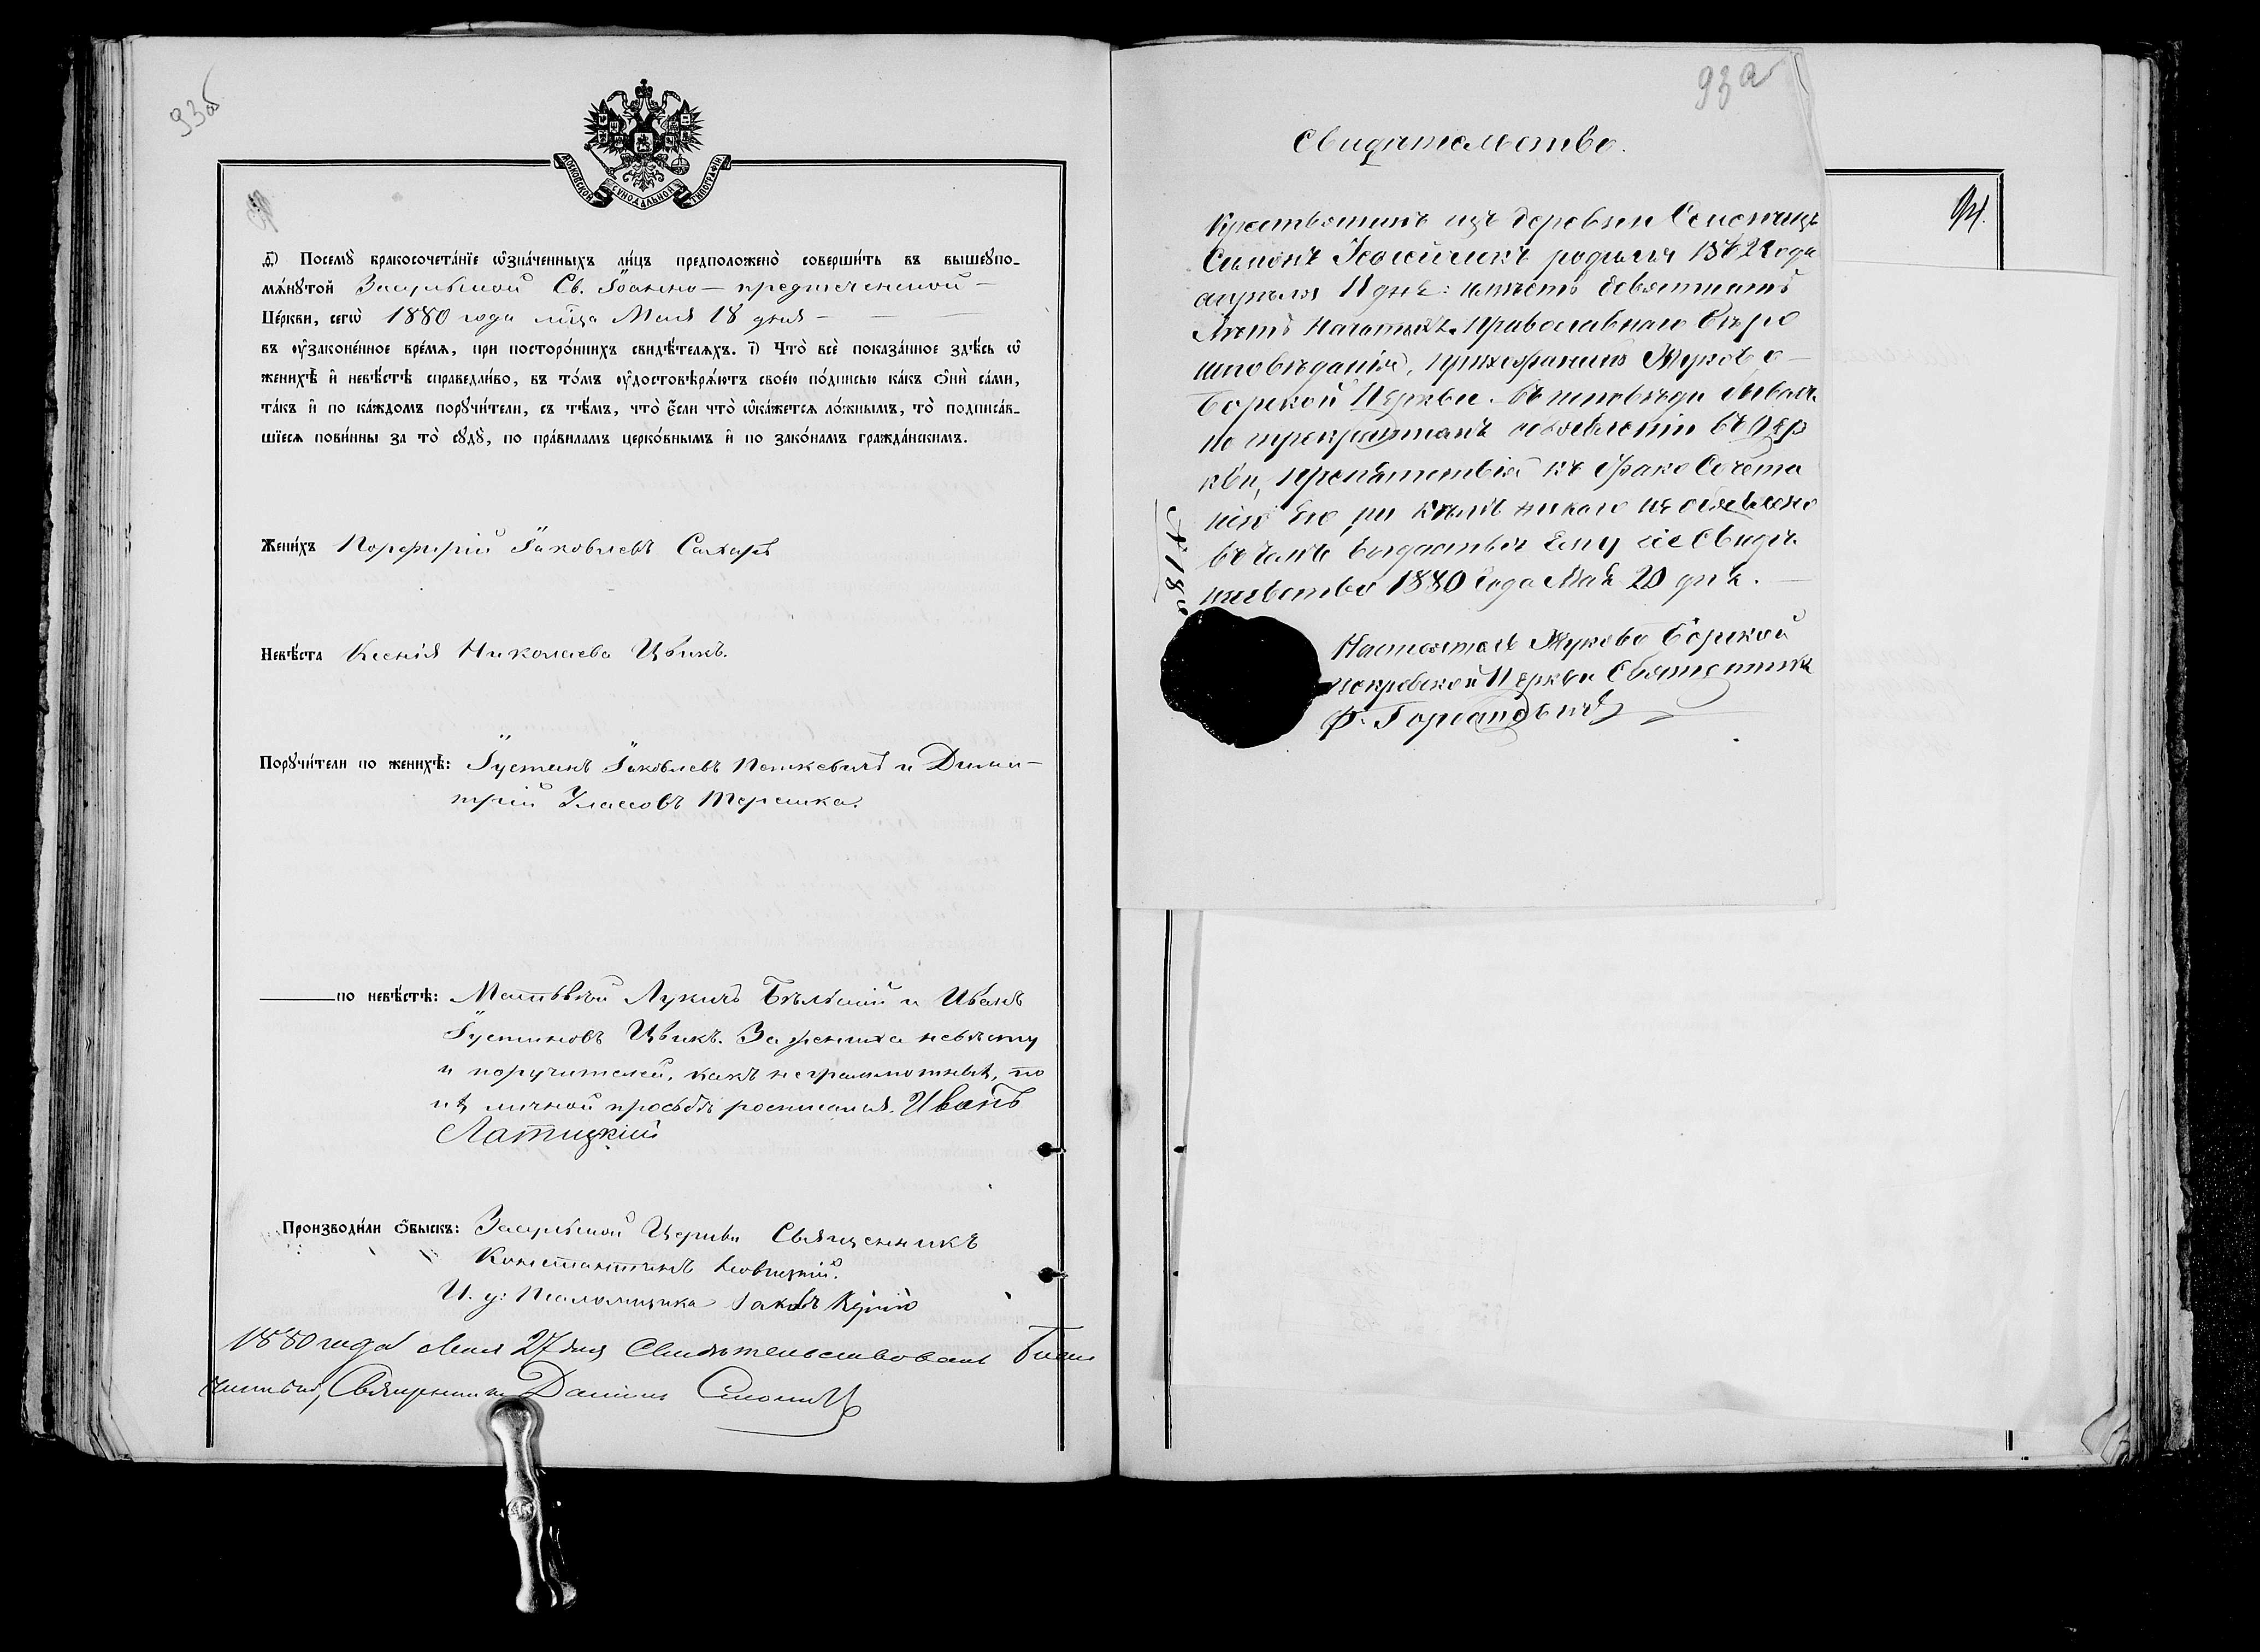 93об
МОСКОВСКОЙ СѴНОДАЛЬНОЙ ТИПОГРАФІИ
д҃) Посемꙋ̀ бракосочета́нїе ѡ҆зна́ченныхъ ли́цъ предположено̀ соверши́ть въ вышеꙋпо-
мѧ́нꙋтой Засульской Св. Іоанно – предтеченской –
Це́ркви, сегѡ̀ 1880 года мѣца Мая 18 дня –
въ ᲂу҆законе́нное вре́мѧ, при посторо́ннихъ свидѣ́телѧхъ. і҃) Что̀ всѐ показа́нное здѣ́сь ѡ҆
женихѣ̀ и҆ невѣ́стѣ справедли́во, въ то́мъ ᲂу҆достовѣрѧ́ютъ свое́ю по́дписью ка́къ ѻ҆нѝ са́ми,
та́къ и҆ по ка́ждомъ порꙋчи́тели, съ тѣ́мъ, что̀ є҆́сли что̀ ѡ҆ка́жетсѧ ло́жнымъ, то̀ подписа́в-
шїесѧ пови́нны за то̀ сꙋдꙋ̀, по пра́виламъ церко́внымъ и҆ по зако́намъ гражда́нскимъ.
Жени́хъ Порфирій Іаковлевъ Сахаръ
Невѣ́ста Ксенія Николаева Цвикъ.
Порꙋчи́тели по женихѣ̀: Іустинъ Іаковлевъ Петкевичъ и Дими-
трій Власовъ Терешка.
по невѣ́стѣ: Матѳѣй Лукичъ Бѣльскій и Иванъ
Іустиновъ Цвикъ. За жениха невѣсту
и поручителей, какъ неграмотныхъ, по
ихъ личной просьбѣ росписался. Иванъ
Латицкій
Производи́ли ѻ҆́быскъ: Засульской Церкви Священникъ
Константинъ Новицкій.
И. д: Псаломщика Іаковъ
1880 года Мая 27 дня Свидѣтельствовалъ Благо
чинный, Священникъ Даніилъ
93а
Свидѣтельство.
Крестьянинъ изъ деревни
Симонъ родился 1862 года
апрѣля 11 дня: имѣетъ девятнать
лѣтъ начатыхъ. Православнаго вѣро
исповѣданія, прихожанинъ Жуково –
Борской Церкви. въ исповѣди бывал.
по трекратномъ объявленіи въ Цер
кви, препятствій къ бракосочета
нію его ни кѣмъ никого не объявлено
въ чемъ выдаетъся ему сіе Свидѣ
тельство 1880 года Мая 20 дня. –
Настоятель Жуково Борской
покровской Церкви Священникъ
Ф. Горбацевичъ
94.